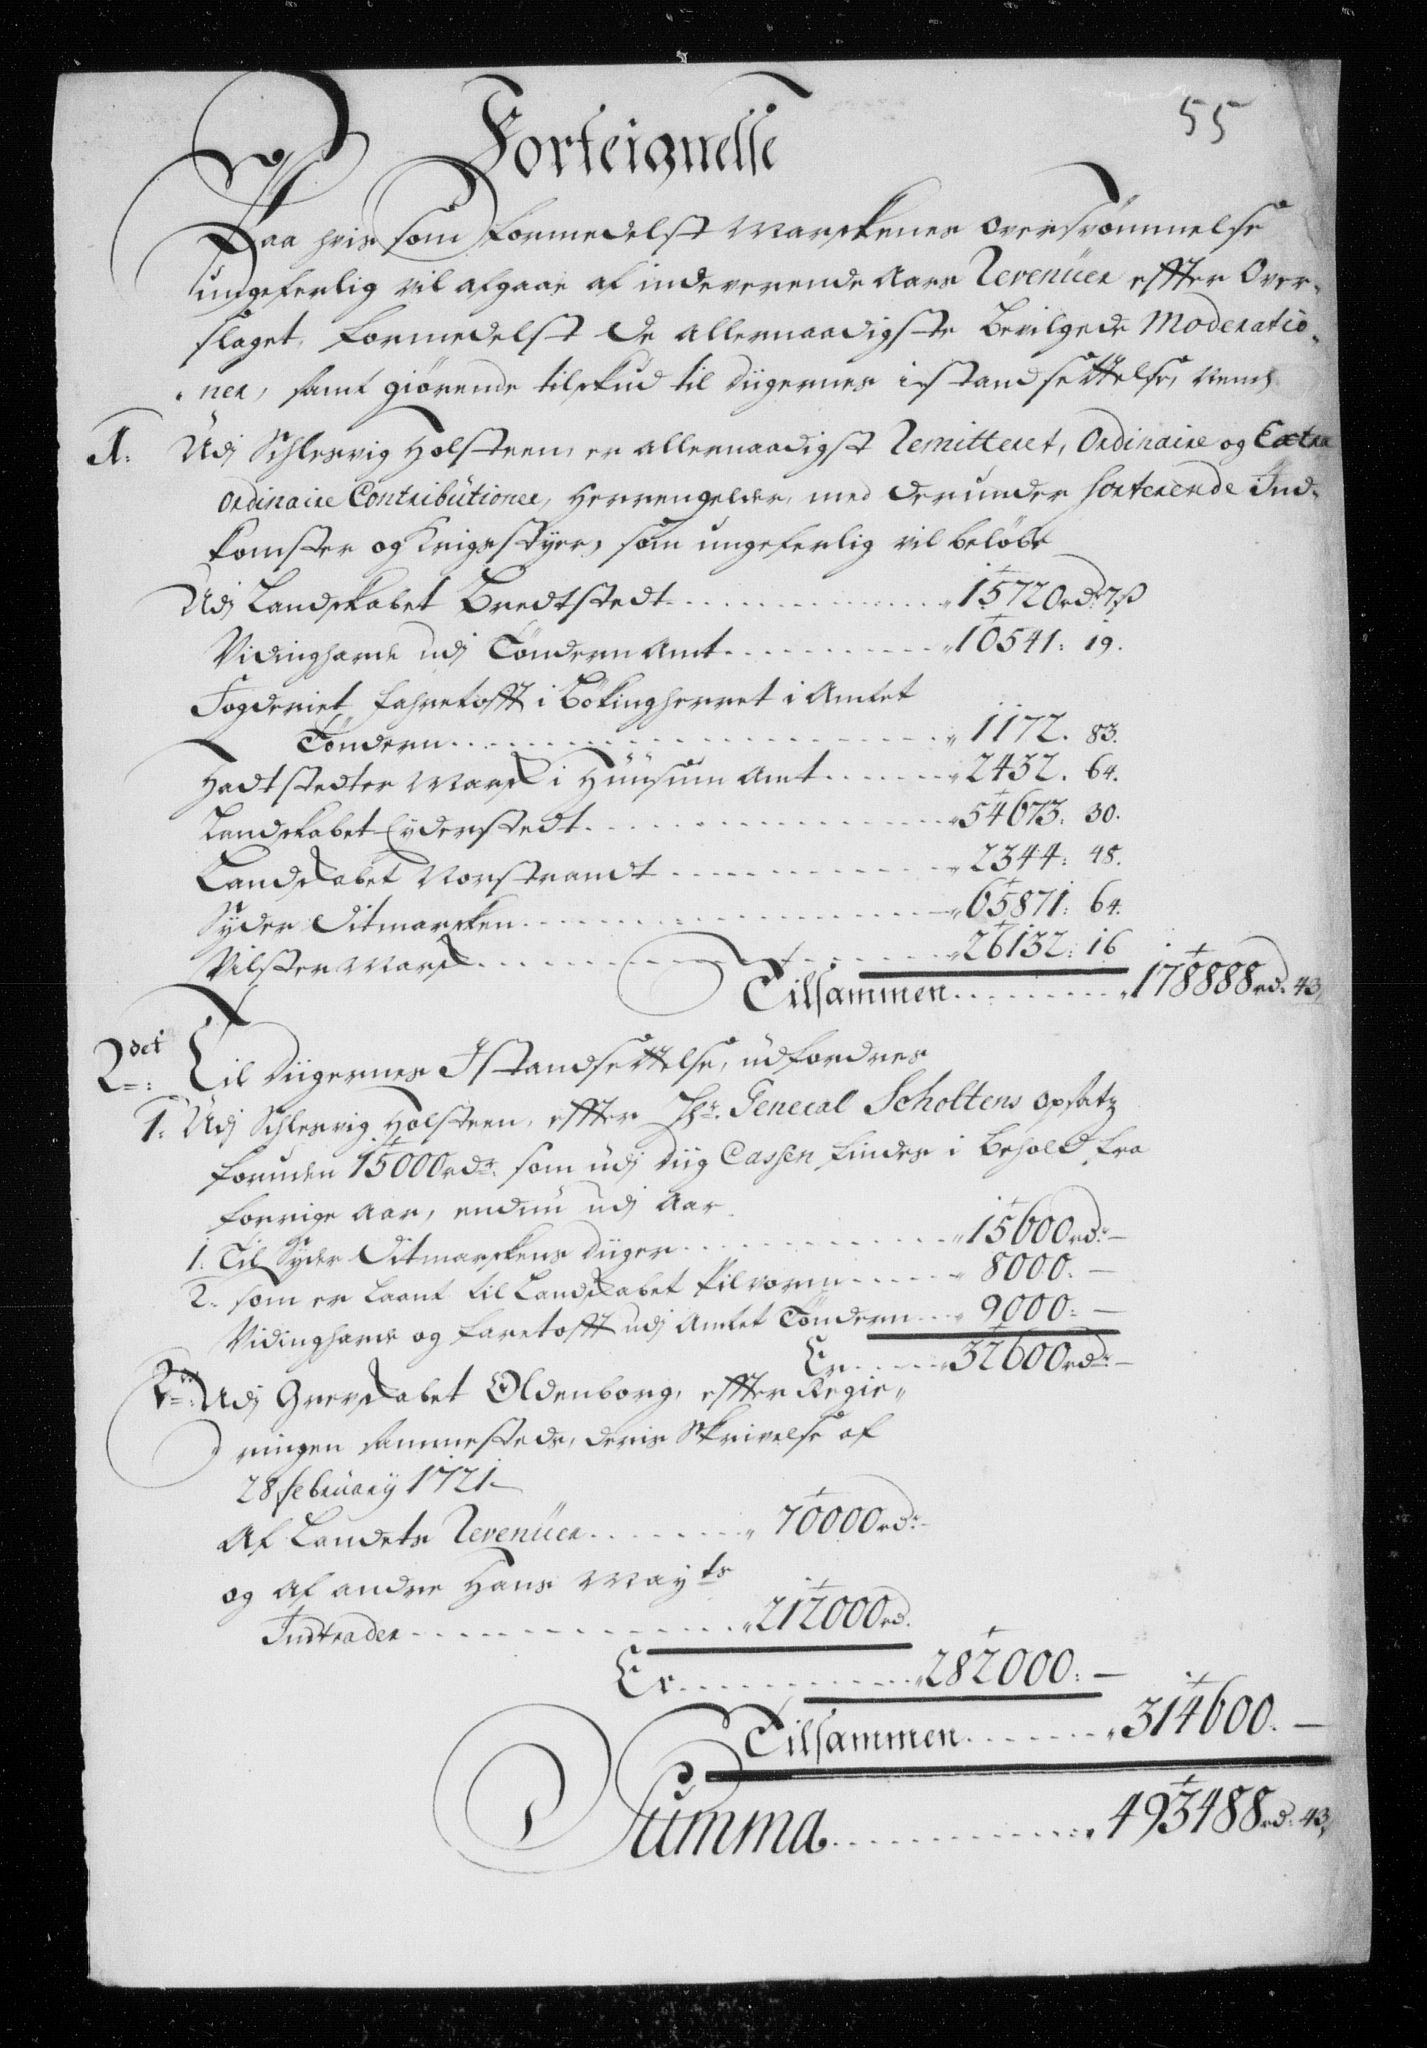 55
Forteignelse
Paa hvis som formedelst Marskenes Oversvömmelse
ungeferlig vil afgaae af indeverende Aars Revenüer effter Over-
slaget, formedelst de allernaadigste Bevilgede Moderatio-
ner, samt giörende tilskud til digernes istandsættelse, Neml:
1. Udj Schlesvig Holsteen, er allernaadigst Remitteret, Ordinaire og Extra
Ordinaire Contributioner, Herrengelder, med derunder sorterende Ind-
komster og Krigsstyer, som ungeferlig vil belöbe
Udj Landskabet Bredtstedt . . . 15720 rdr. 7 ß
Vidingharde udj Töndern Amt . . . 10541: 19.
Fogderiet Fahretofft i Bökingherret i Amtet
Töndern . . . 1172. 83.
Hadtstedter Marsk i Hüüsum Amt . . . 2432. 64.
Landskabet Eyderstedt . . . 54673: 30.
Landskabet Norstrandt . . . 2344: 48.
Syder Ditmarsken . . . 65871: 64.
Vilster Marsk . . . 26132: 16
Tilsammen . . . 178888 rd. 43
2det Til diigernes Istandsettelse, udfordres
1. Udj Schlesvig Holsteen, effter Hr. General Scholtens opsatz
foruden 15000 rdr. som udj diig Cassen findes i behold fra
forrige Aar, endnu udj Aar
1. Til Syder Ditmarskens diiger . . . 15600 rdr. —
2. som er laant til Landskabet Pilvorm . . . 8000. —
Vidingharde og Faretofft udj Amtet Töndern . . . 9000: —
Er . . . 32600 rdr. —
2. Udj Grevskabet Oldenborg, effter Regie-
ringen sammesteds, deris Skrivelse af
28 february 1721.
Af Landets Revenüer . . . 70000 rdr. —
og af andre Hans Mayts
Indtrader . . . 212000 rd.
Er . . . 282000: —
Tilsammen . . . 314600. —
Summa . . . 493488 rd. 43